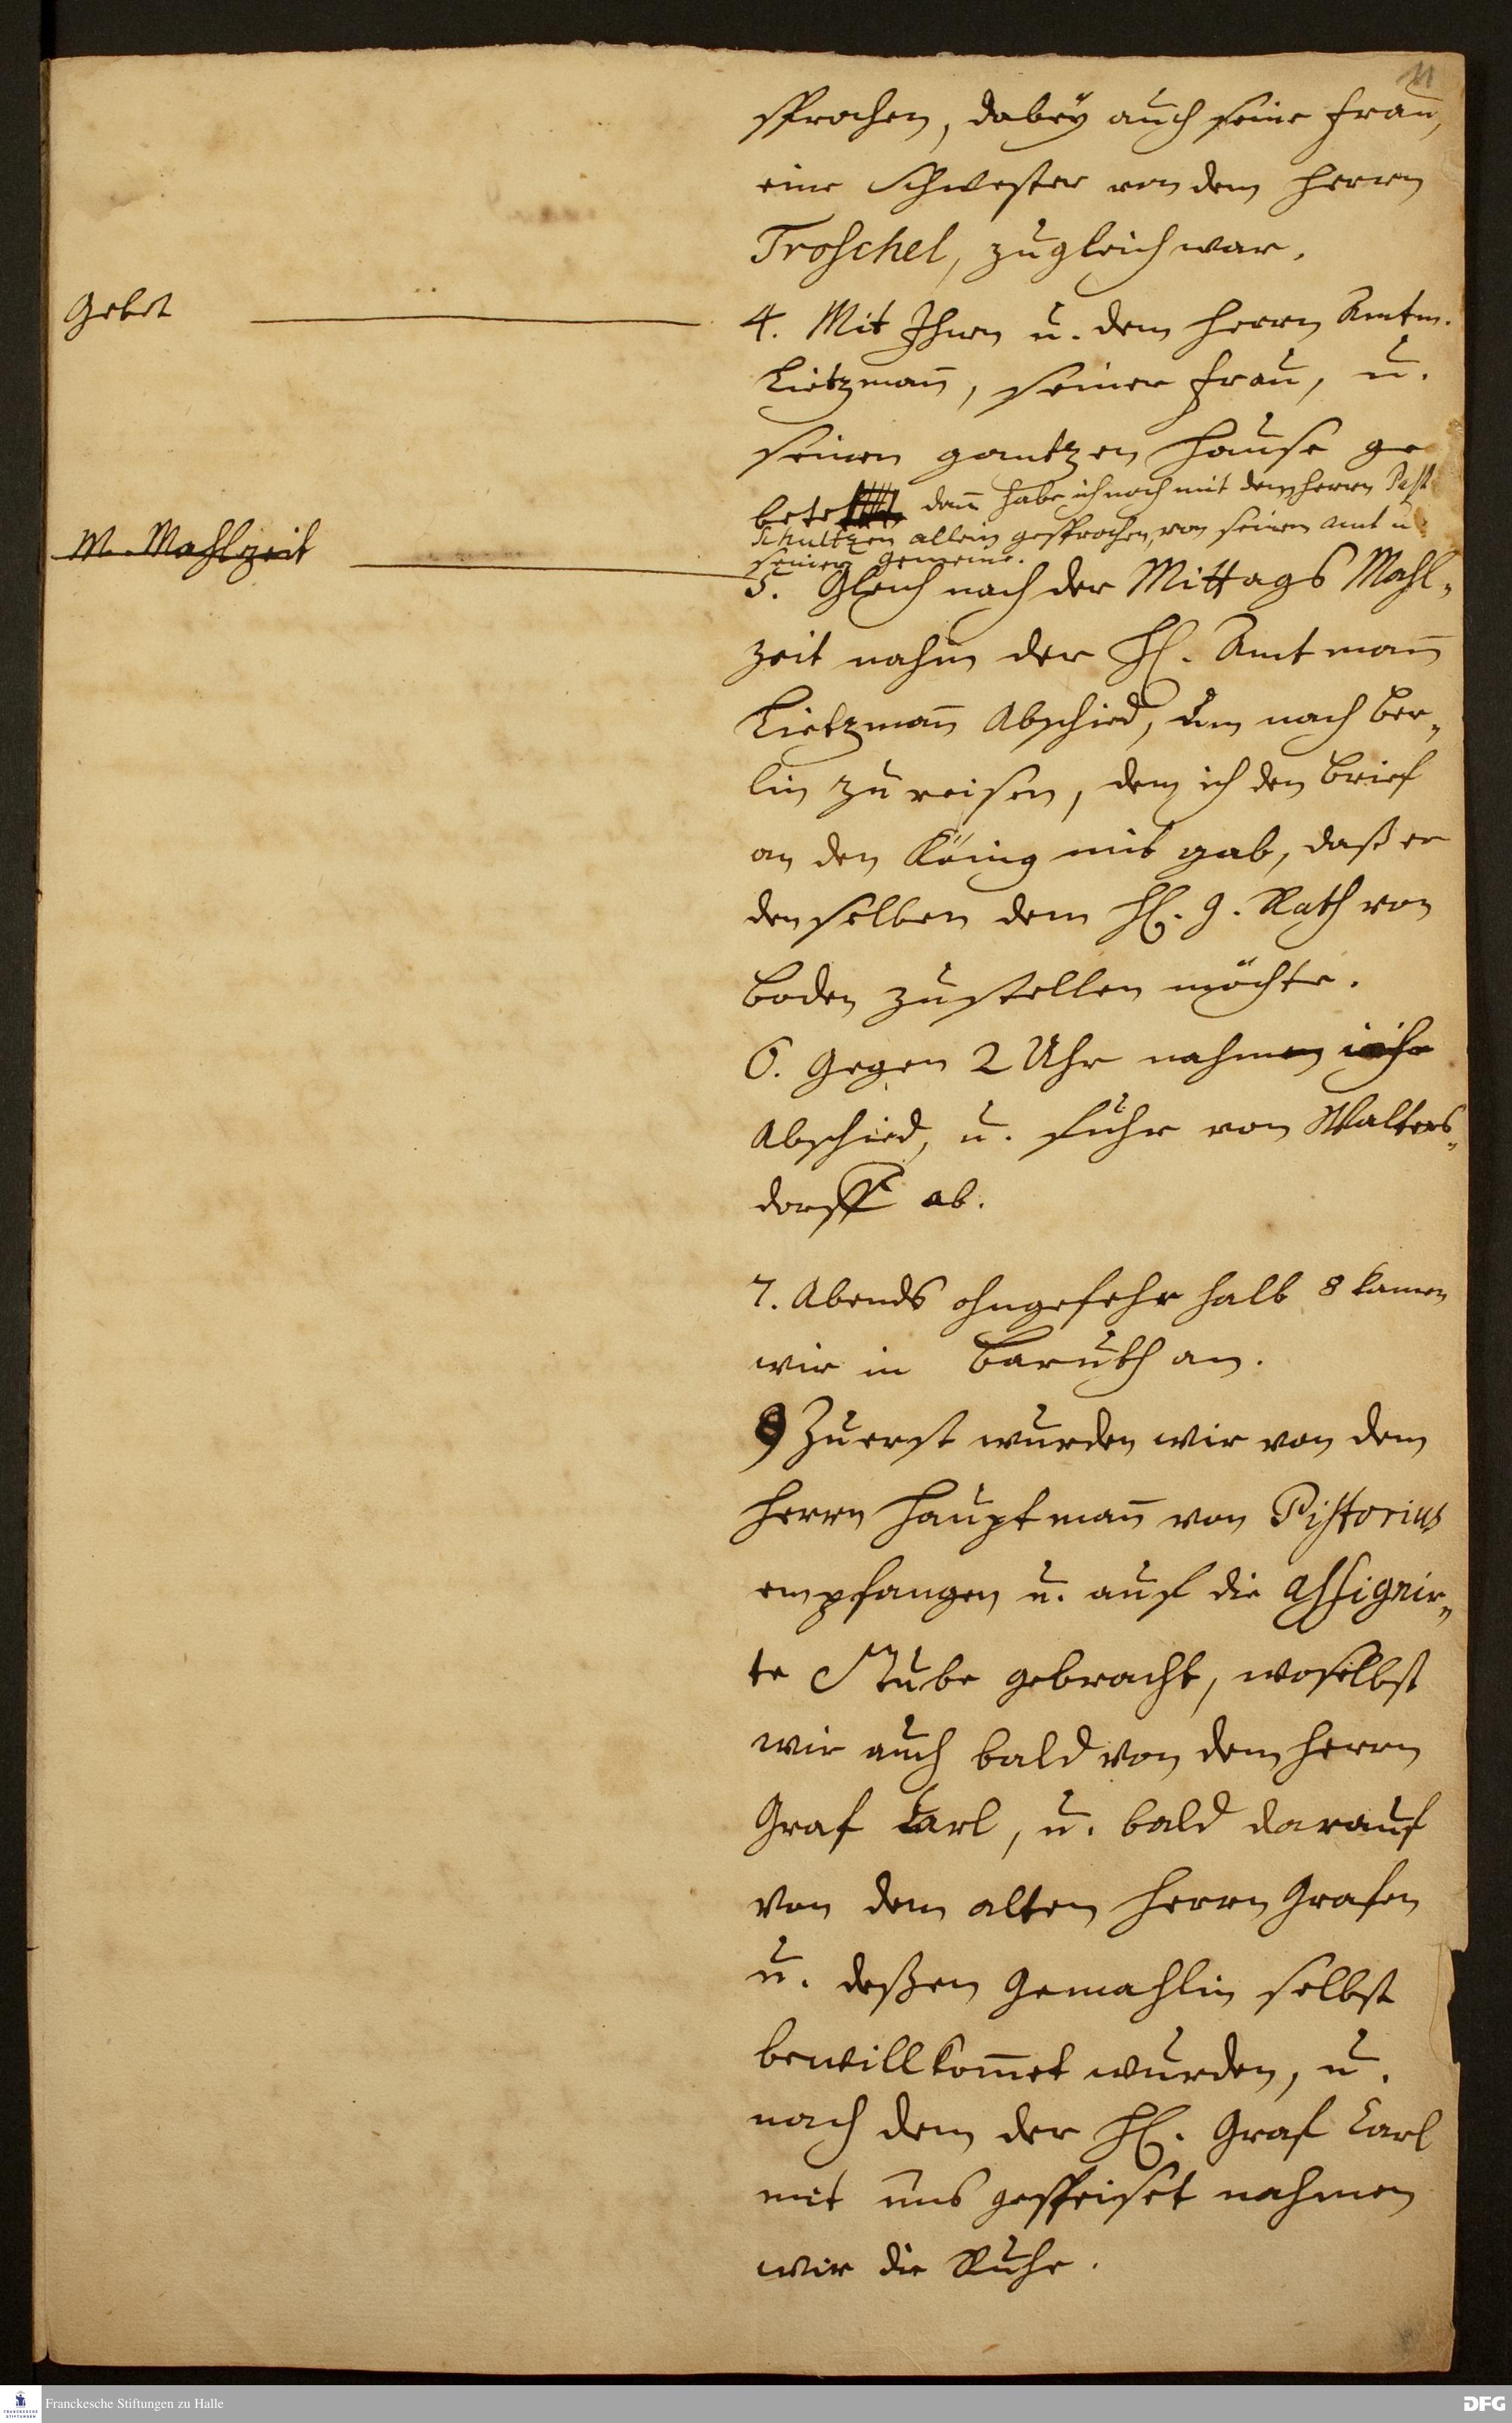 11
sprochen, dabeÿ auch seine Frau,
eine Schwester von dem Herrn
Troschel, zugleich war.
Gebet
4. Mit Ihnen u. dem Herrn Amtm.
Lietzman̄, seiner Frau, u.
seinen gantzen Hause ge
betet dan̄ habe ich noch mit dem Herrn Past
Schultzen allein gesprochen, von seinem Amt u
seiner Gemeine.
M. Mahlzeit
5. Gleich nach der Mittags Mahl„
zeit nahm der H. Amtman̄
Lietzman̄ Abschied, um nach Ber„
lin zu reisen, dem ich den Brief
an den König mit gab, daß er
denselben dem H. G. Rath von
Boden zustellen möchte.
6. Gegen 2 Uhr nahmen
Abschied, u. fuhr von Walters„
dorff ab.
7. Abends ohngefehr halb 8 kamen
wir in Baruth an.
8) Zuerst wurden wir von dem
Herrn Hauptman̄ von Pistorius
empfangen u. auf die assignir„
te Stube gebracht, woselbst
wir auch bald von dem Herrn
Graf Carl, u. bald darauf
von dem alten Herrn Grafen
u. deßen Gemahlin selbst
bewillkom̄et wurden, u.
nach dem der H. Graf Carl
mit uns gespeiset nahmen
wir die Ruhe.
Franckesche Stiftungen zu Halle
DFG